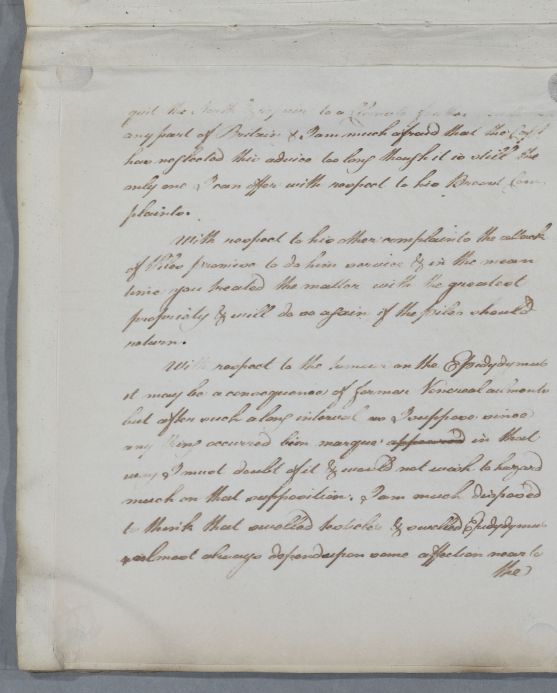 quit the North & repair to a Climate
any part of Britain & I am much afraid that the Capt
has neglected this advice too long though it is still the
only one I can offer with respect to his Breast Com
plaints.
With respect to his other complaints the attack
of Piles promises to do him service & in the mean
time you treated the matter with the greatest
propriety & will do so again if the piles should
return.
With respect to the tumour on the Epidydymus
it may be a consequence of former Venereal ailments
but after such a long interval as I suppose since
any thing occurred in that
way I must doubt of it & would not wish to hazard
much on that supposition. I am much disposed
to think that swelled testicles & swelled Epidydymus
almost always depend upon some affection near to
the